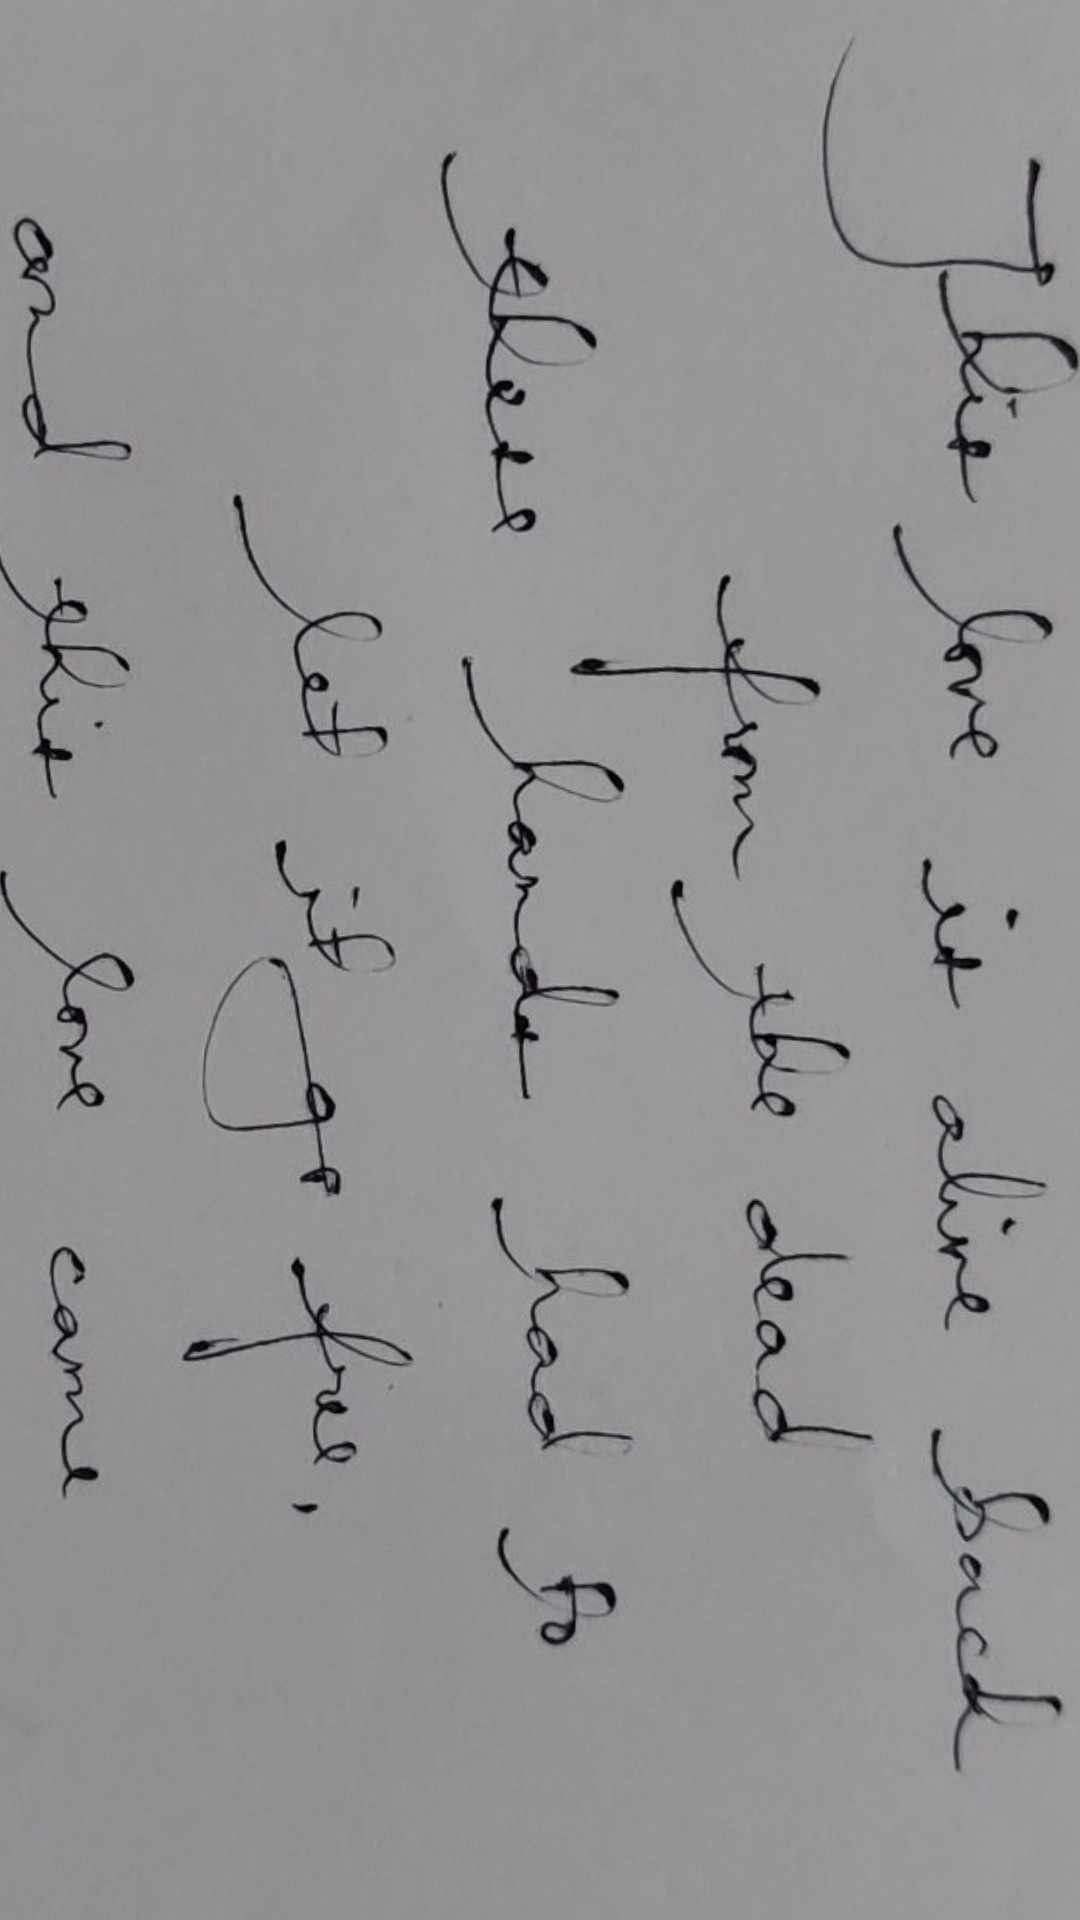 This love is alive back
from the dead
these hands had to
let it go free,
and this love came